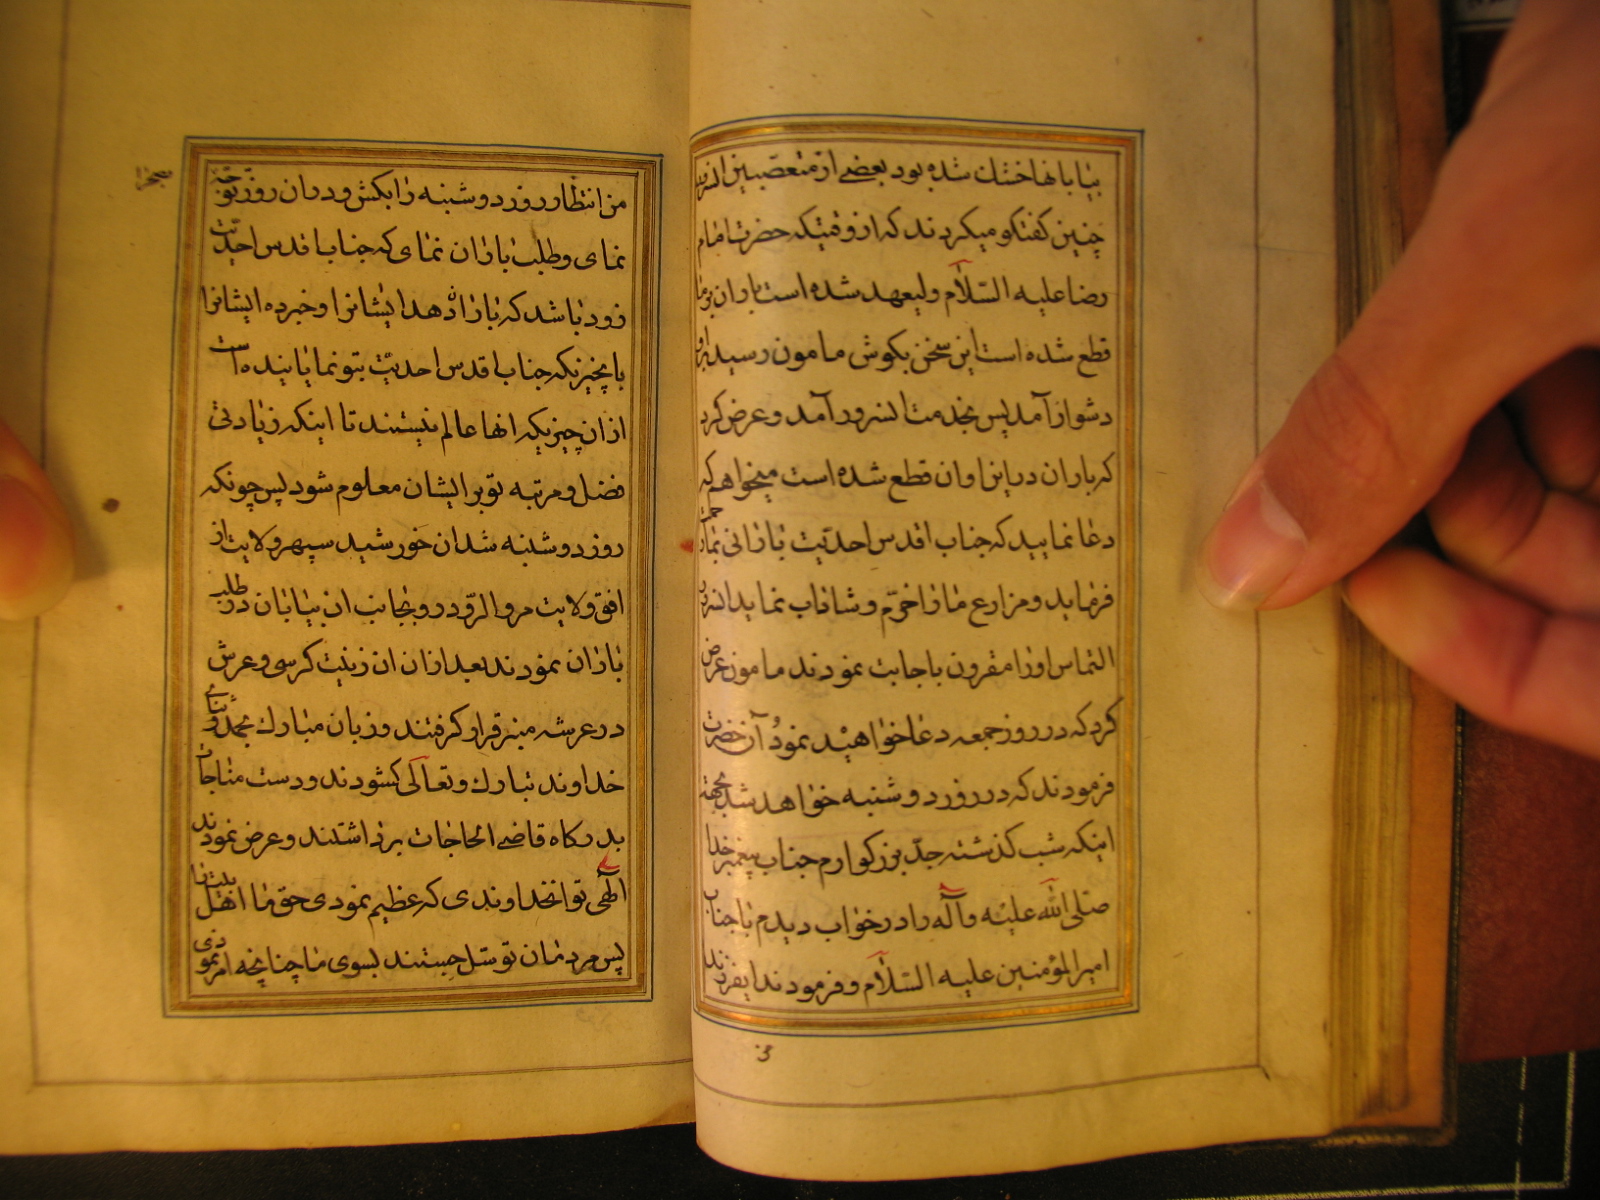 بیابانها خشك شده بود بعضے از متعصبین انسرور
چنین کفتکو میکردند که از وقتیکه حضرت امام
رضا علیه السّلام ولیعهد شده است باران بر ما
قطع شده است این سخن بکوش مامون رسید بر او
دشوار آمد پس بخدمت انسرور آمد و عرض کرد
که باران در این اوان قطع شده است میخواهم که
دعا نمایید که جناب اقدس احدیّت بارانی رحمت
فرماید و مزارع ما را خرّم و شاداب نماید انسرور
التماس او را مقرون باجابت نمودند مامون عرض
کرد که در روز جمعه دعا خواهید نمود آن حضرت
فرمودند که در روز دوشنبه خواهد شد بجهة
اینکه شب کذشته جدّ بزرکوارم جناب پیغمبر خدا
صلّی الله علیه وآله را در خواب دیدم با جناب
امیر المؤمنین علیه السّلام و فرمودند ایفرزند
من انتظار روز دوشنبه را بکش و در ان روز توجّه
صحرا
نمای و طلب باران نمای که جناب اقدس احدیّت
زود باشد که باران دهد ایشانرا و خبر ده ایشانرا
بانچیزیکه جناب اقدس احدیّت بتو نمایانیده است
از ان چیزیکه انها عالم نیستند تا اینکه زیادتی
فضل و مرتبه تو بر ایشان معلوم شود پس چونکه
روز دوشنبه شد ان خورشید سپهر ولایت از
افق ولایت مرو الرّود رو بجانب ان بیابان در طلب
باران نمودند بعد از ان ان زینت کرسی و عرش
در عرشه منبر قرار کرفتند و زبان مبارك بحمد و ثنای
خداوند تبارك وتعالی کشودند و دست مناجات
بدرکاه قاضے الحاجات برداشتند و عرض نمودند
الٓهی تو انخداوندی که عظیم نمودی حق ما اهل بیت را
پس مردمان توسّل جستند بسوی ما چنانچه امر نمودی